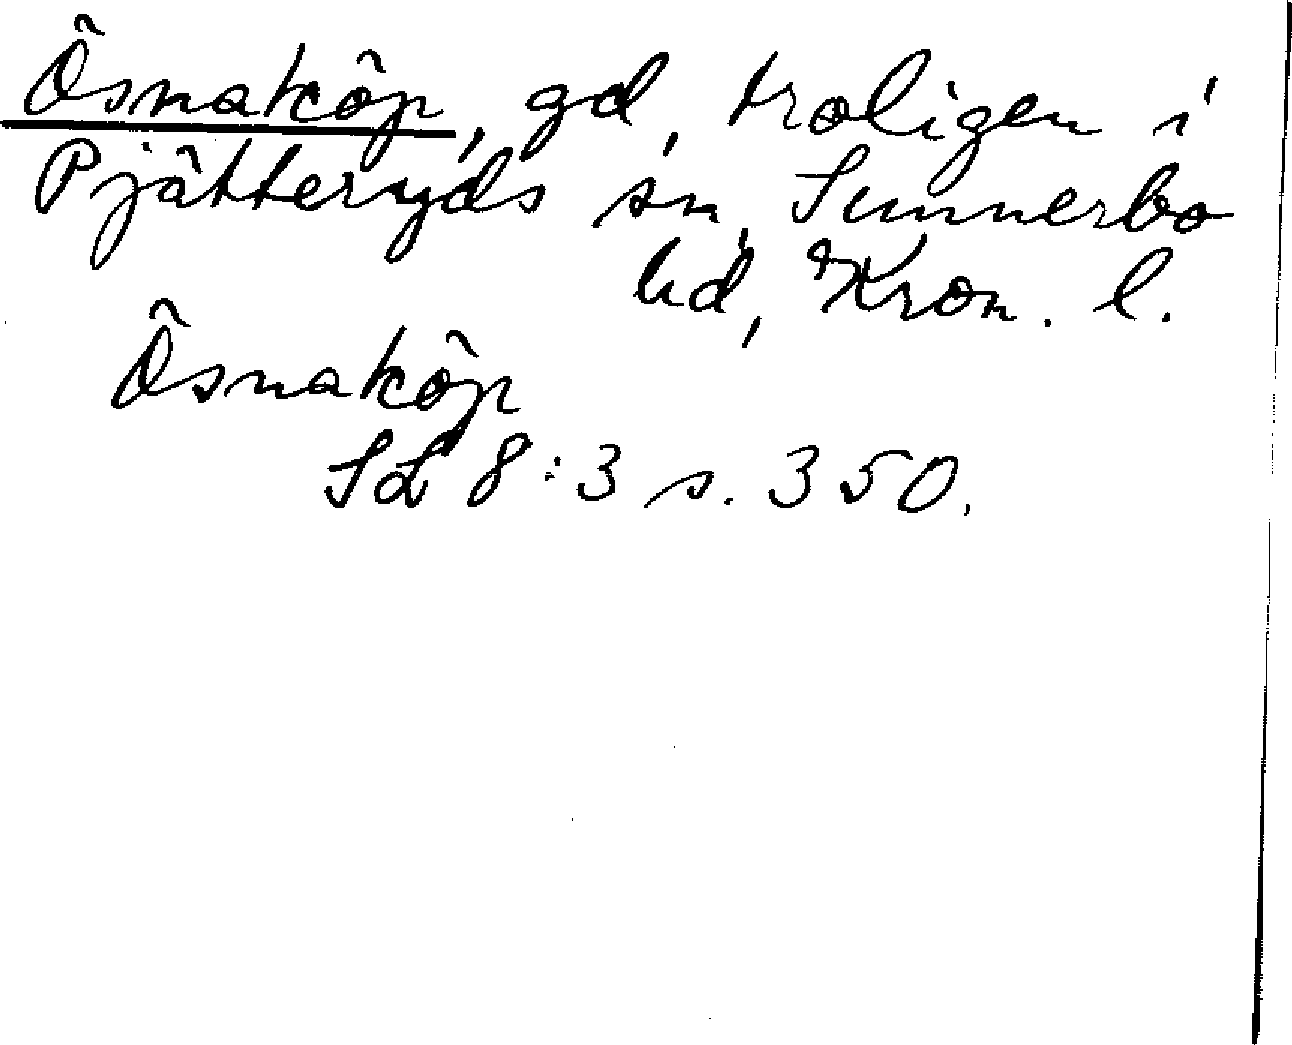 Ösnaköp, gd, troligen i
Pjätteryds sn, Sunnerbo
hd, Kron. l.
Ösnaköp
SL 8:3 s. 350.